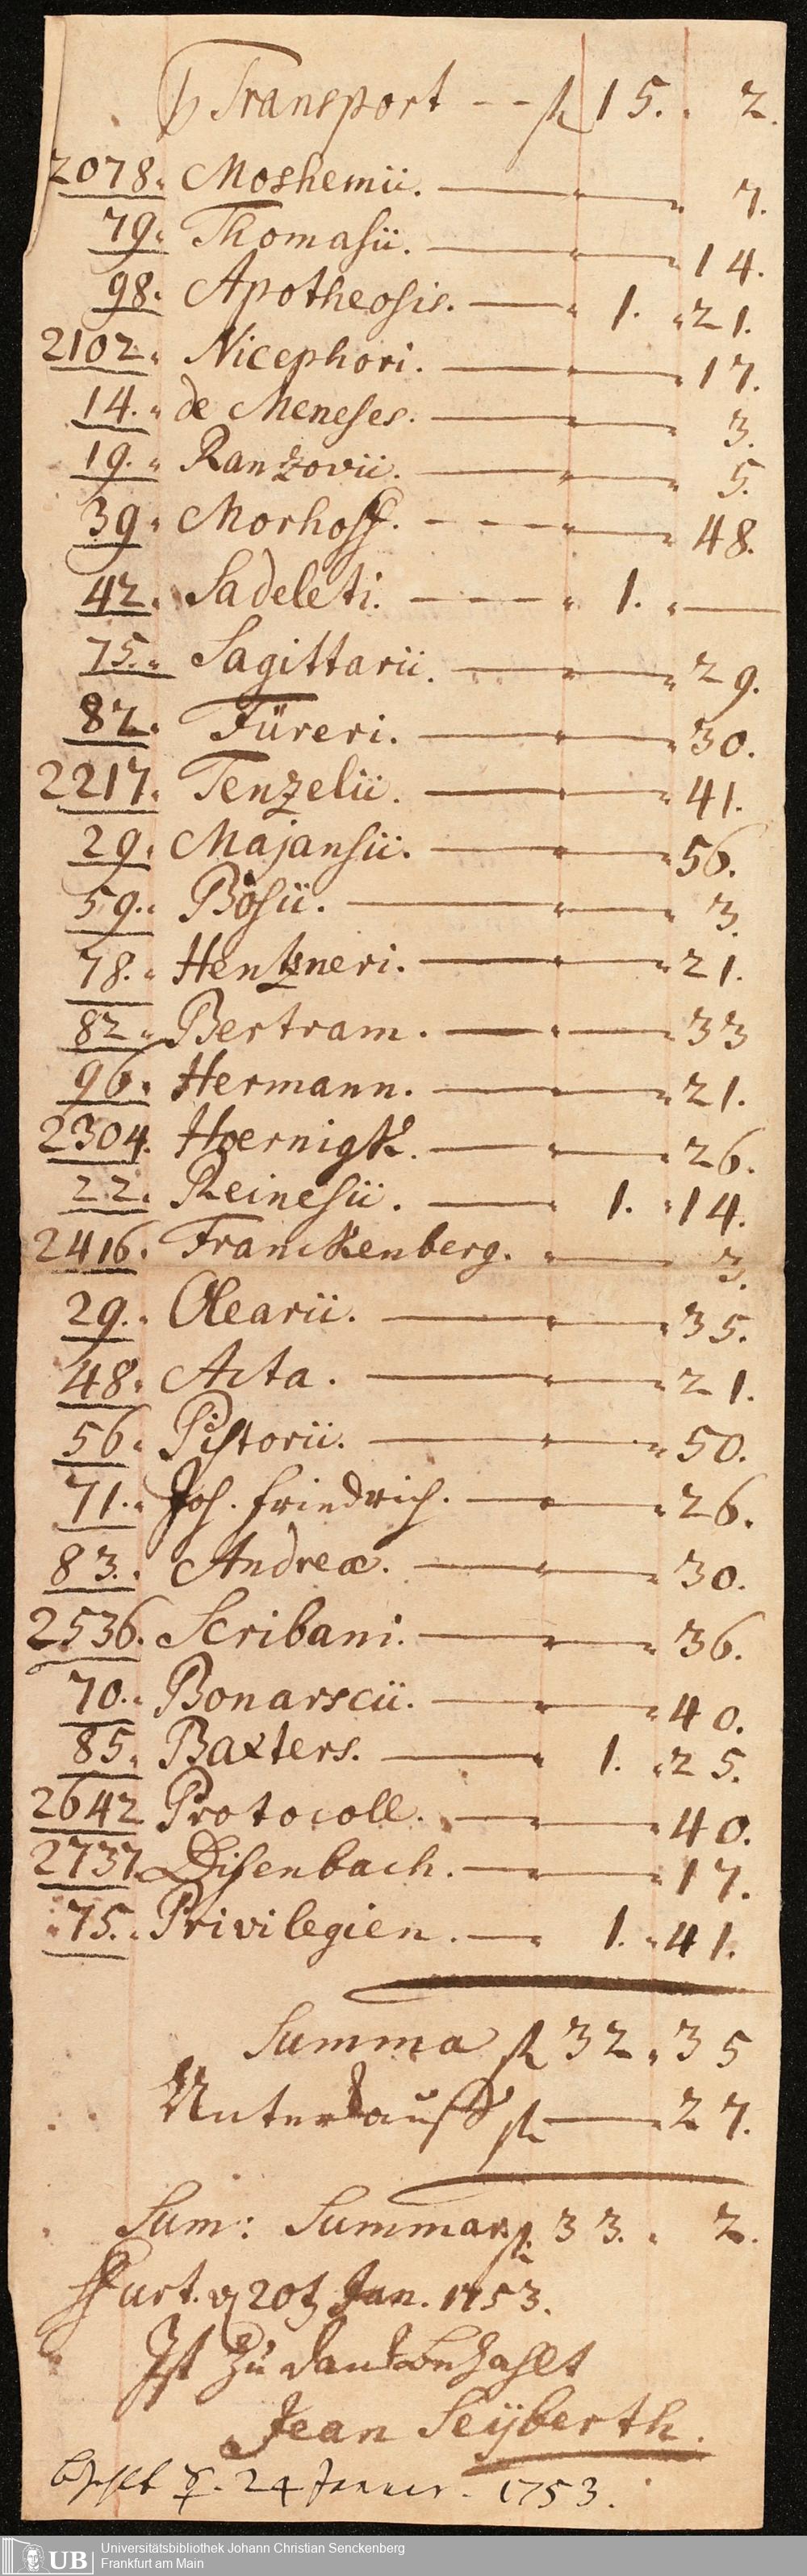 Transport -- fl 15. " 2.
2078. Moshemii. — " — " 7.
79. Thomasii. — " — " 14.
98. Apotheosis. — " 1. " 21.
2102. Nicephori. — " — " 17.
14. " de Meneses. — " — " 3.
19. " Ranzovii. — " — " 5.
39. Morhoff. - - - " — " 48.
42. Sadeleti. - - - " 1. " —
75. " Sagittarii. — " — " 29.
82. Füreri. — " — " 30.
2217. Tenzelii. — " — " 41.
29. Majansii. — " — " 56.
59. " Bosii. — " — " 3.
78. " Hentzneri. — " — " 21.
82 " Bertram. — " — " 33
96. Hermann. — " — " 21.
2304. Hoernigk. — " — " 26.
22. Reinesii. — " 1. " 14.
2416. Franckenberg. " — " 3.
29. " Olearii. — " — " 35.
48. Acta. — " — " 21.
56 " Pistorii. — " — " 50.
71. " Joh. Friedrich. — " — " 26.
83. " Andreæ. — " — " 30.
2536. Scribani. — " — " 36.
70. " Bonarscii. — " — " 40.
85. Baxters. — " 1. " 25.
2642 Protocoll. — " — " 40.
2737. Disenbach. — " — " 17.
75. " Privilegien. — " 1. " 41.
Summa fl 32 " 35
Unterkauff fl — " 27.
Sum: Summar. fl. 33. " 2.
Ffurt. d 20t Jan. 1753.
Ist zu danck bezahlt
Jean Seÿberth.
24 Januar. 1753.
UB Universitätsbibliothek Johann Christian Senckenberg
Frankfurt am Main